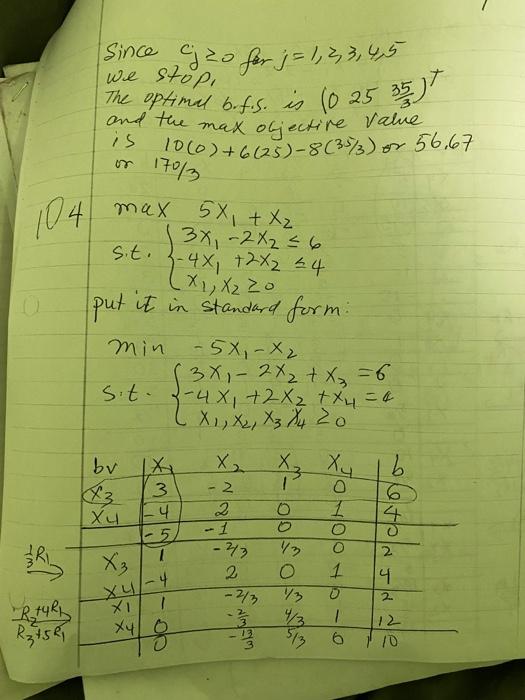 Since cj ≥0 for j=1,2,3,4,5
we stop,
The optimal b.f.s. is (0 25 35/3)ᵀ
and the max objective value
is 10(0)+6(25)-8(35/3) or 56.67
or 170/3
104 max 5X₁ + X₂
s.t. { 3X₁ -2X₂ ≤ 6
-4X₁ +2X₂ ≤ 4
X₁, X₂ ≥0
put it in standard form:
min -5X₁-X₂
s.t. { 3X₁- 2X₂ + X₃ =6
-4X₁ +2X₂ +X₄ = 4
X₁, X₂, X₃ X₄ ≥0
bv X₁ X₂ X₃ X₄ b
X₃ 3 -2 1 0 6
X₄ -4 2 0 1 4
-5 -1 0 0 0
⅓R₁ X₃ 1 -2/3 1/3 0 2
X₄ -4 2 0 1 4
X1 1 -2/3 1/3 0 2
R₂+4R₁ X₄ 0 -2/3 4/3 1 12
R₃+5R₁ 0 -13/3 5/3 0 10